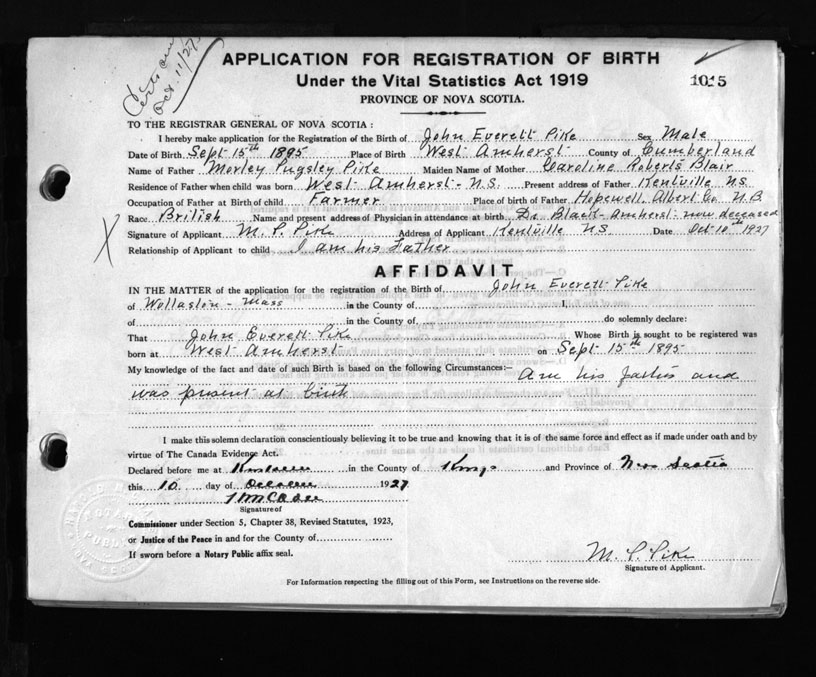 Oct. 11/27
APPLICATION FOR REGISTRATION OF BIRTH
Under the Vital Statistics Act 1919
1015
PROVINCE OF NOVA SCOTIA.
TO THE REGISTRAR GENERAL OF NOVA SCOTIA :
I hereby make application for the Registration of the Birth of John Everett Pike Sex Male
Date of Birth Sept 15th 1895 Place of Birth West Amherst County of Cumberland
Name of Father Morley Pugsley Pike Maiden Name of Mother Caroline Roberts Blair
Residence of Father when child was born West Amherst - N.S. Present address of Father Kentville NS
Occupation of Father at Birth of child Farmer Place of birth of Father Hopewell Albert Co N.B.
Race British Name and present address of Physician in attendance at birth Dr. Black - Amherst - now deceased
Signature of Applicant M. P. Pike Address of Applicant Kentville NS Date Oct 10th 1927
Relationship of Applicant to child I am his Father
AFFIDAVIT
IN THE MATTER of the application for the registration of the Birth of John Everett Pike
of Wollaston - Mass in the County of
of in the County of do solemnly declare:
That John Everett Pike Whose Birth is sought to be registered was
born at West Amherst on Sept 15th 1895
My knowledge of the fact and date of such Birth is based on the following Circumstances:— Am his father and
was present at birth
I make this solemn declaration conscientiously believing it to be true and knowing that it is of the same force and effect as if made under oath and by
virtue of The Canada Evidence Act.
Declared before me at Kentville in the County of Kings and Province of Nova Scotia
this 10 day of October 1927
Signature of
Commissioner under Section 5, Chapter 38, Revised Statutes, 1923,
or Justice of the Peace in and for the County of
If sworn before a Notary Public affix seal.
M. P. Pike
Signature of Applicant.
For Information respecting the filling out of this Form, see Instructions on the reverse side.